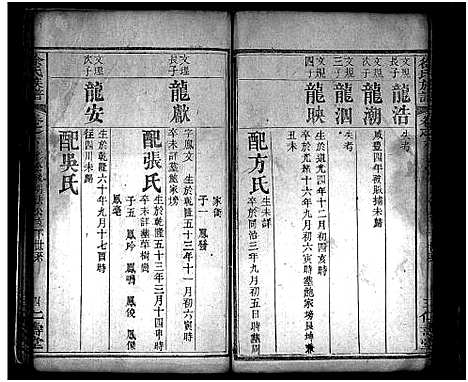 徐氏族譜
文理長子
龍浩
生考
文規次子
龍潮
生考
咸豐四年被賊擄未歸
文規三子
龍泗
文規四子
龍映
生於道光四年十二月初四亥時
卒於光緒十六年八月初六寅時墓鮑家塆艮坤兼
丑未
配方氏
生未詳
卒於同治三年九月初五日時墓周
文理長子
龍獻
字鳳文 生於乾隆五十三年十一月初六寅時
卒未詳墓鮑家塆
子一 鳳發
配張氏
生於乾隆五十三年三月十四寅時
卒未詳墓草樹崗
子五 鳳玲 鳳明 鳳俊 鳳保
鳳亳
文理次子
龍安
生於乾隆六十年九月十七酉時
往四川未歸
配吳氏